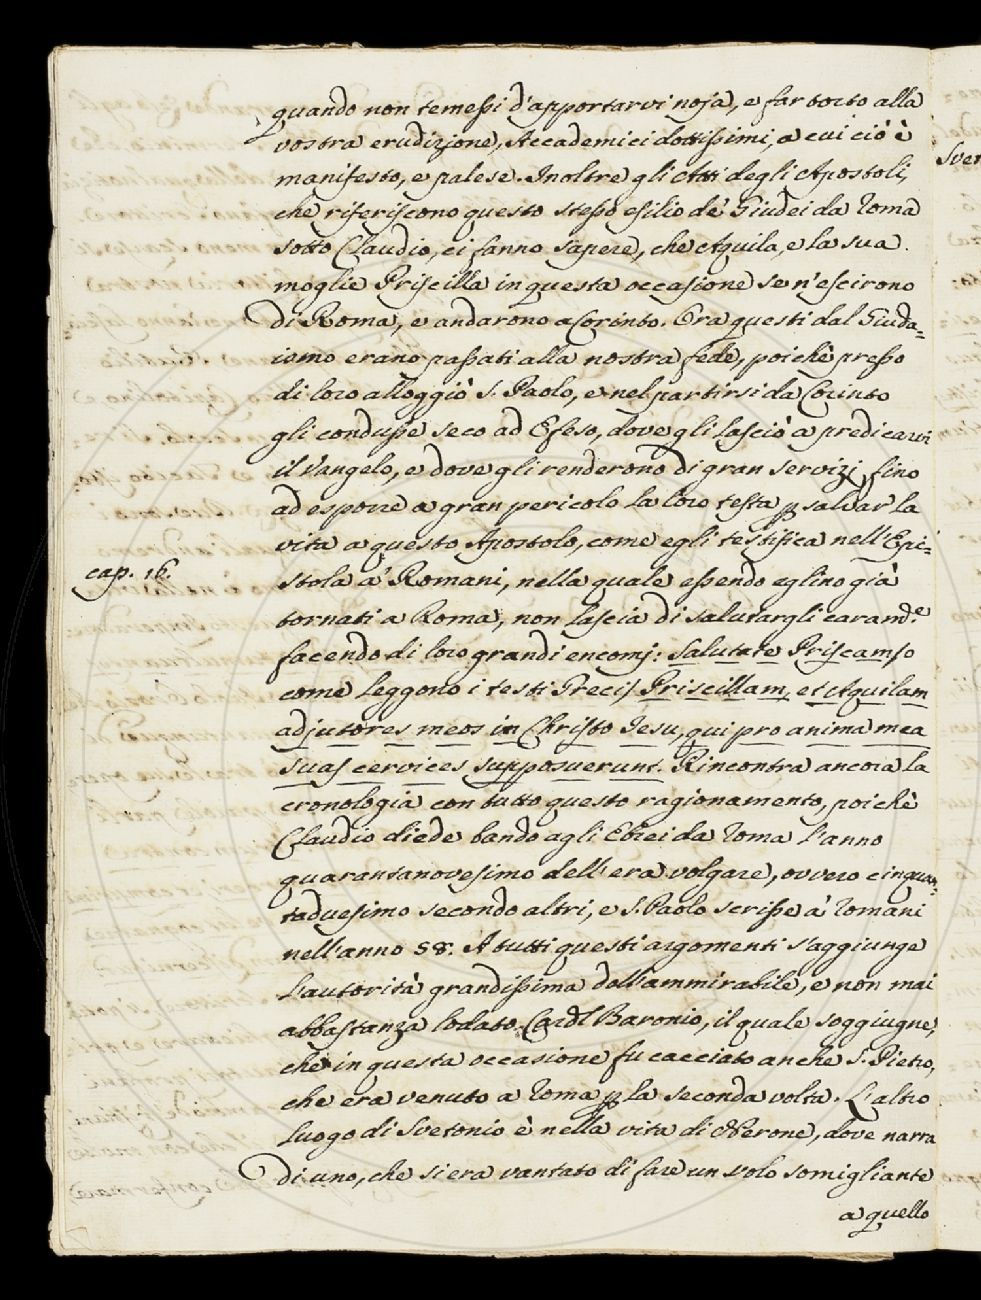 quando non temessi d'apportarvi noja, e far torto alla
vostra erudizione, Accademici dottissimi, a cui ciò è
manifesto, e palese. Inoltre gli Atti degli Apostoli,
che riferiscono questo stesso esilio de' Giudei da Roma
sotto Claudio, ci fanno sapere, che Aquila, e la sua
moglie Priscilla in questa occasione se n'escirono
di Roma, e andarono a Corinto. Ora questi dal Giuda=
ismo erano passati alla nostra fede, poichè presso
di loro alloggiò S. Paolo, e nel partirsi da Corinto
gli condusse seco ad Efeso, dove gli lasciò a predicarvi
il Vangelo, e dove gli renderono di gran servizj, fino
ad esporre a gran pericolo la loro testa p salvar la
vita a questo Apostolo, come egli testifica nell'Epi=
cap. 16.
stola a' Romani, nella quale essendo eglino già
tornati a Roma, non lascia di salutargli caramd.e
facendo di loro grandi encomj: Salutate Priscam, o
come leggono i testi Greci, Priscillam, et Aquilam
adjutores meos in Christo Jesu, qui pro anima mea
suas cervices supposuerunt. Rincontra ancora la
cronologia con tutto questo ragionamento, poichè
Claudio diede bando agli Ebrei da Roma l'anno
quarantanovesimo dell'era volgare, ovvero cinquan=
taduesimo secondo altri, e S. Paolo scrisse a' Romani
nell'anno 58. A tutti questi argomenti s'aggiunge
l'autorità grandissima dell'ammirabile, e non mai
abbastanza lodato Cardl Baronio, il quale soggiugne,
che in questa occasione fu cacciato anche S. Pietro,
che era venuto a Roma p la seconda volta. L'altro
luogo di Svetonio è nella vita di Nerone, dove narra
di uno, che si era vantato di fare un volo somigliante
a quello